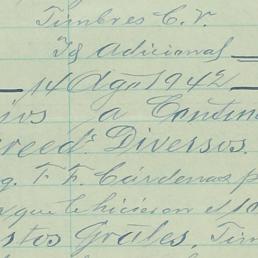 Timbres C. V.
Id Adicional
14 Ago. 1942
a Contin
reed. Diversos.
g. T. F. Cárdenas p
que le hicieron el 10
stos Grales, Tim